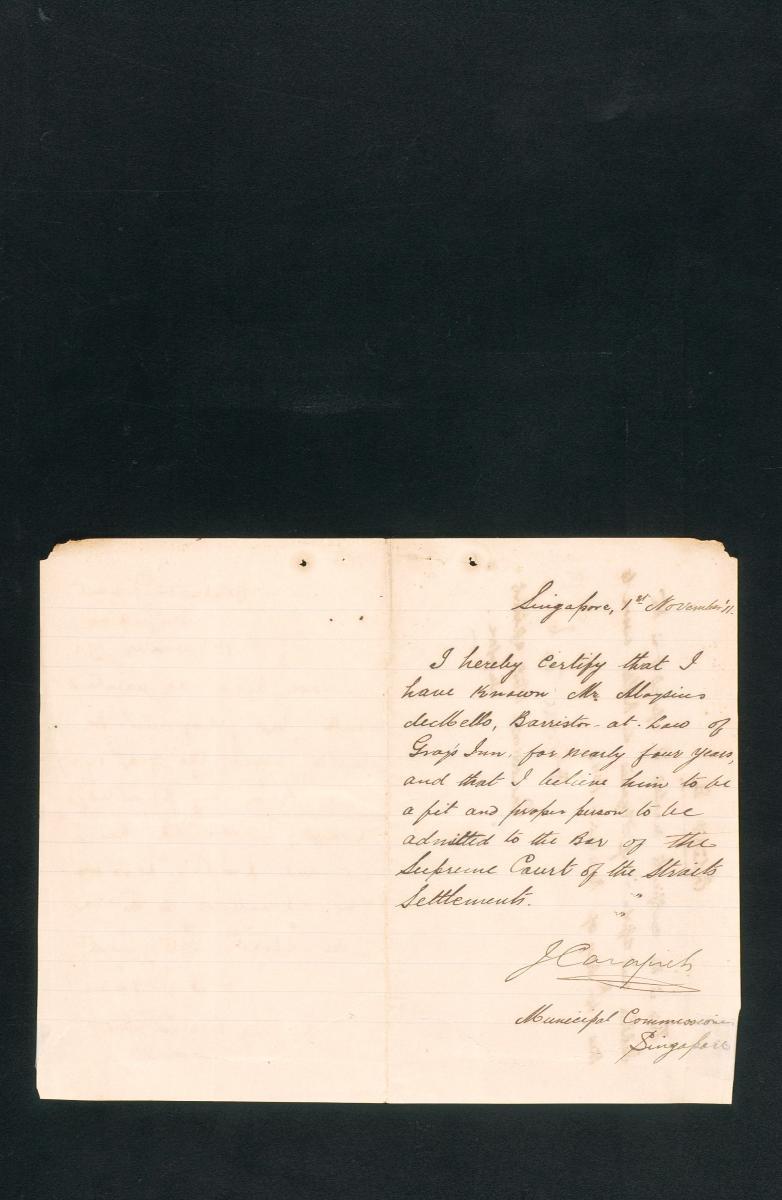 Singapore, 1st November '11.
I hereby certify that I
have known Mr. Aloysius
deMello, Barrister-at-Law of
Gray's Inn, for nearly four years,
and that I believe him to be
a fit and proper person to be
admitted to the Bar of the
Supreme Court of the Straits
Settlements.
J Carapiet
Municipal Commissioner
Singapore